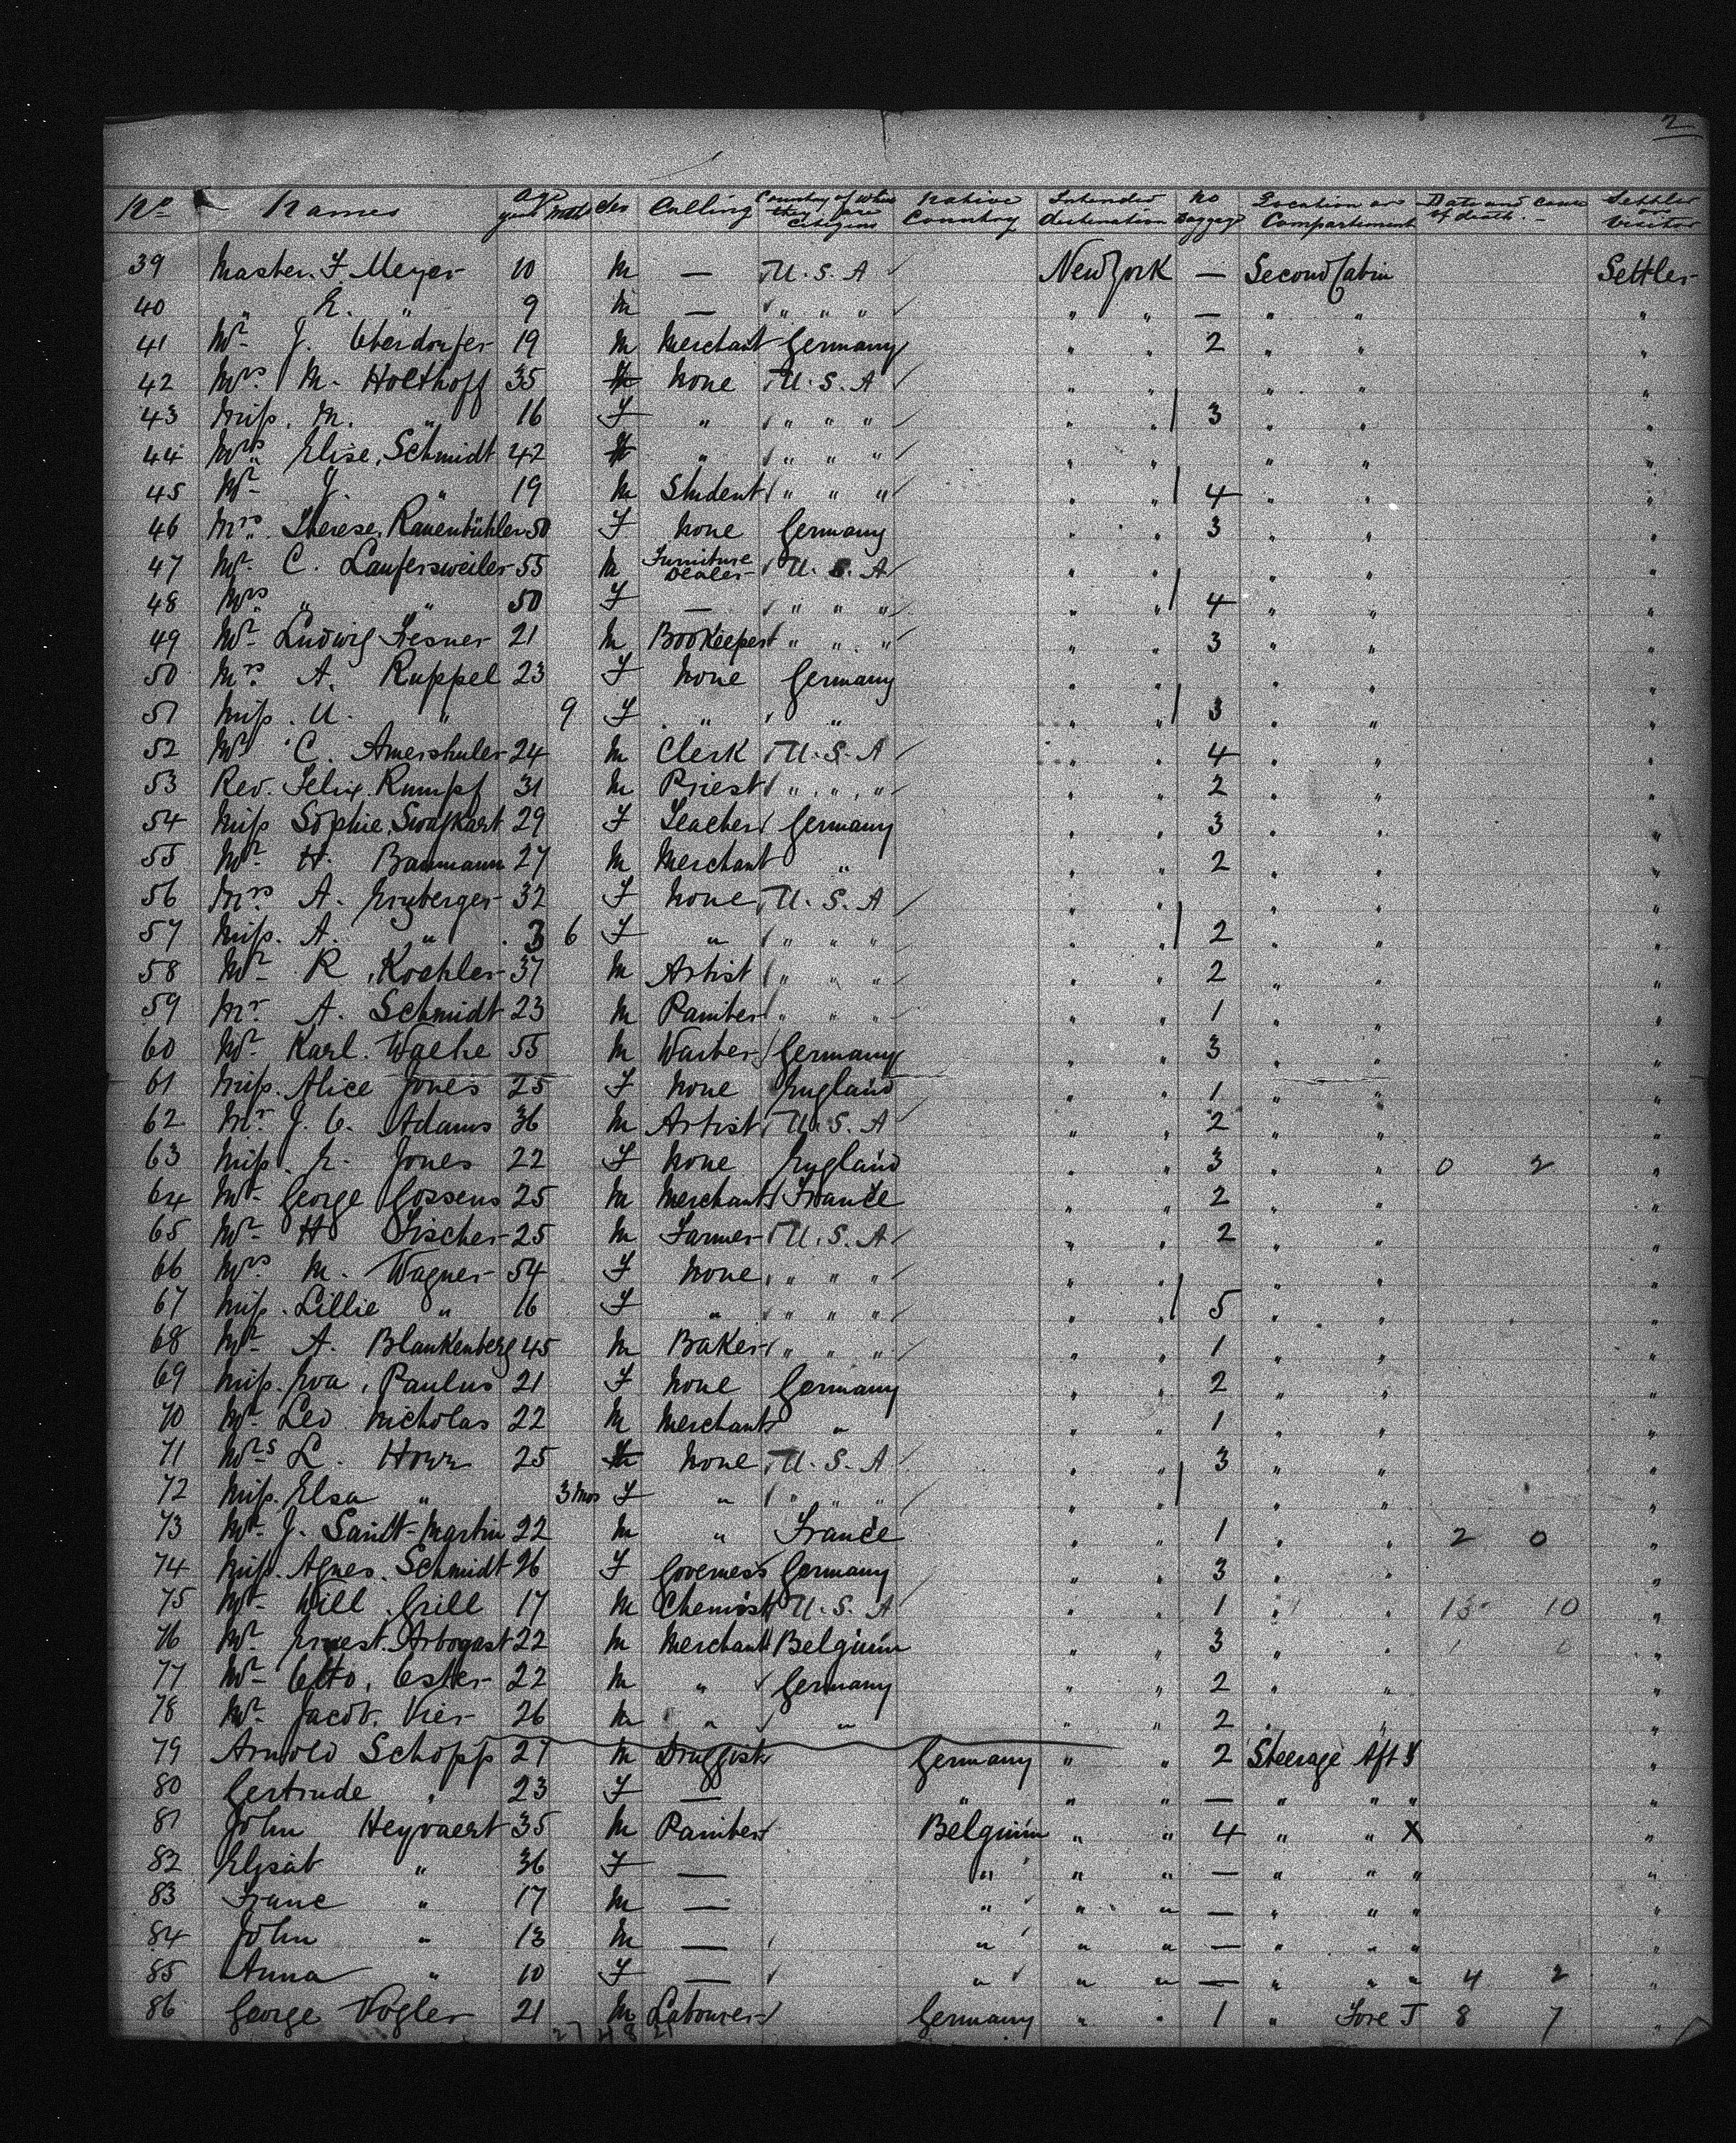 2
No Names Age years mths Sex Calling Country of which they are citizens Native Country Intended destination No Baggage Location or Compartment Date and cause of death. Settler or Visitor
39 Master. F. Meyer 10 M — U.S.A New York — Second Cabin Settler
40 " E. " 9 M — " " " " " — " " "
41 Mr. J. Oberdorfer 19 M Merchant Germany " " 2 " " "
42 Mrs. M. Holthoff 35 None U.S.A " " " " "
43 Miss. M. " 16 F " " " " " " 3 " " "
44 Mrs. Elise. Schmidt 42 " " " " " " " " "
45 Mr. J. " 19 M Student " " " " " 4 " " "
46 Mrs. Therese. Rauenbühler 50 F None Germany " " 3 " " "
47 Mr. C. Laufersweiler 55 M Furniture Dealer U.S.A " " " " "
48 Mrs " " 50 F — " " " " " 4 " " "
49 Mr. Ludwig Fresner 21 M Bookeeper " " " " " 3 " " "
50 Mrs. A. Ruppel 23 F None Germany " " " " "
51 Miss. U. " 9 F " " " " 3 " " "
52 Mr C. Amershuler 24 M Clerk U.S.A " " 4 " " "
53 Rev. Felix. Rumpf 31 M Priest " " " " " 2 " " "
54 Miss Sophie. 29 F Teacher Germany " " 3 " " "
55 Mr. H. Baumann 27 M Merchant " " " 2 " " "
56 Mrs. A. 32 F None U.S.A " " " " "
57 Miss. A. " 3 6 F " " " " " " 2 " " "
58 Mr. R. Koehler 37 M Artist " " " " " 2 " " "
59 Mr A. Schmidt 23 M Painter " " " " " 1 " " "
60 Mr. Karl. 55 M Germany " " 3 " " "
61 Miss. Alice Jones 25 F None England " " 1 " " "
62 Mr. J. C. Adams 36 M Artist U.S.A " " 2 " " "
63 Miss. E. Jones 22 F None England " " 3 " " 0 2 "
64 Mr. George Gossens 25 M Merchant France " " 2 " " "
65 Mr. H Fischer 25 M Farmer U.S.A " " 2 " " "
66 Mrs M. Wagner 54 F None " " " " " " " "
67 Miss. Lillie " 16 F " " " " " " 5 " " "
68 Mr. A. Blankenberg 45 M Baker " " " " " 1 " " "
69 Miss. Eva. Paulus 21 F None Germany " " 2 " " "
70 Mr. Leo. Nicholas 22 M Merchant " " " 1 " " "
71 Mrs L. 25 None U.S.A " " 3 " " "
72 Miss. Elsa " 3 mos F " " " " " " " " "
73 Mr. J. Saint-Martin 22 M " France " " 1 " " 2 0 "
74 Miss. Agnes. Schmidt 26 F Governess Germany " " 3 " " "
75 Mr. Will. Grill 17 M Chemist U.S.A " " 1 " " 13 10 "
76 Mr. Ernest. Arbogast 22 M Merchant Belgium " " 3 " " "
77 Mr. Otto. Oster 22 M " Germany " " 2 " " "
78 Mr. Jacob. Vier 26 M " " " " 2 " " "
79 Arnold Schopp 27 M Druggist Germany " " 2 Steerage Aft "
80 Gertrude " 23 F — " " " — " " " "
81 John Heyvaert 35 M Painter Belgium " " 4 " " X "
82 Elisab " 36 F — " " " — " " " "
83 Franc " 17 M — " " " — " " " "
84 John " 13 M — " " " — " " " "
85 Anna " 10 F — " " " — " " " 4 2 "
86 George Vogler 21 M Labourer Germany " " 1 " Fore J 8 7 "